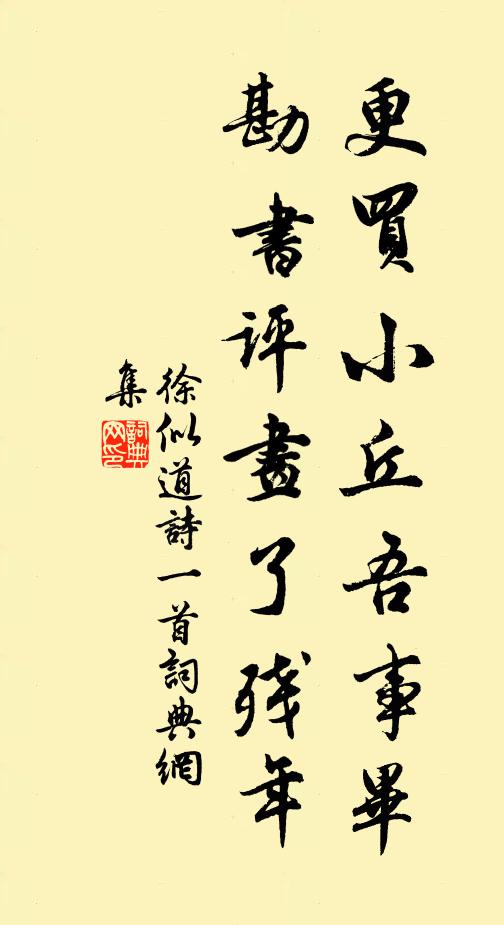 更買小丘吾事畢
勘書評畫了殘年
徐似道詩一首詞典網
集
詞典
网印